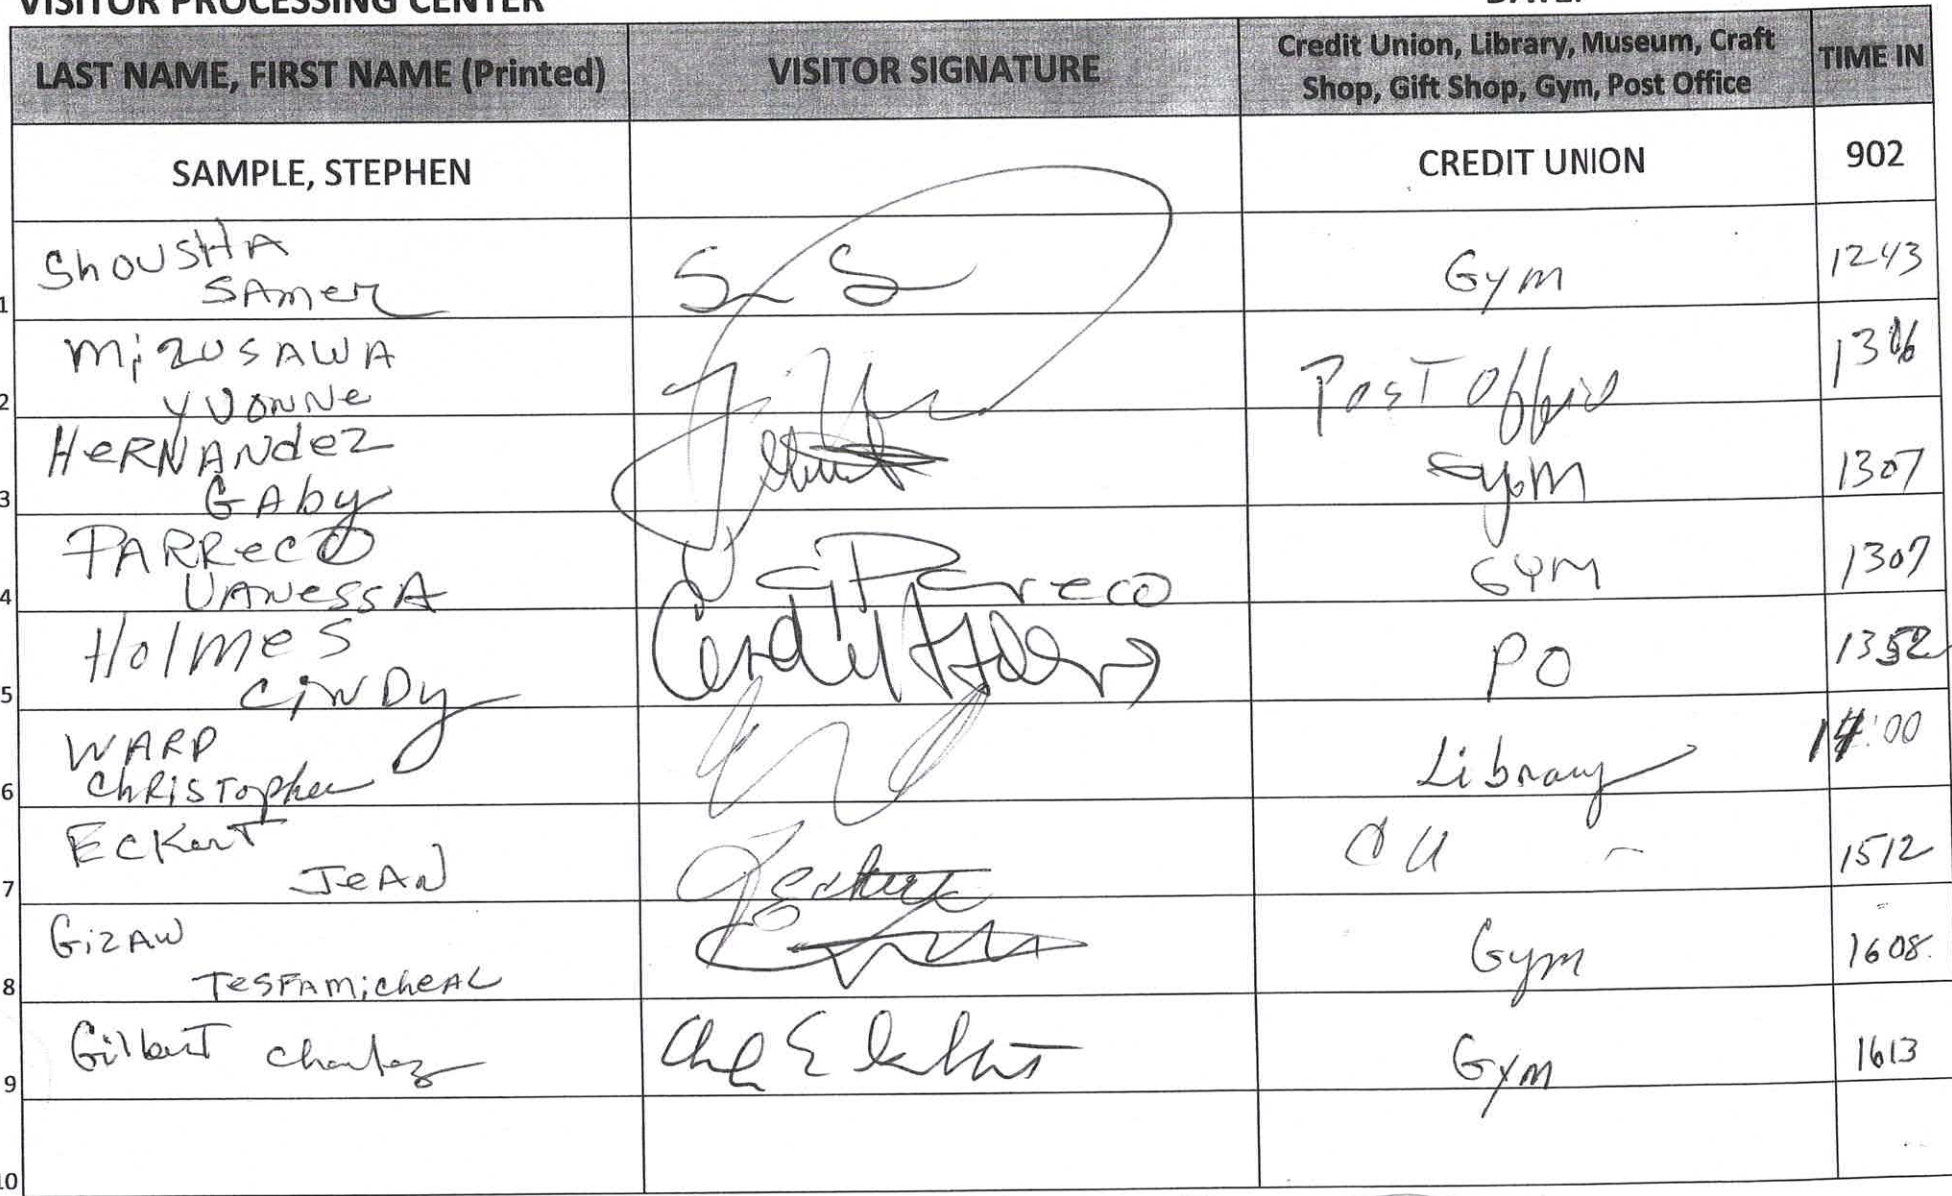 VISITOR PROCESSING CENTER DATE:
LAST NAME, FIRST NAME (Printed) VISITOR SIGNATURE Credit Union, Library, Museum, Craft Shop, Gift Shop, Gym, Post Office TIME IN
SAMPLE, STEPHEN CREDIT UNION 902
ShOUSHA
SAmer S S Gym 1243
1
MizUSAWA
YVONNe Post Office 1316
2
HeRNANdez
GAby Gym 1307
3
PARReCO
VANessA Parreco GYM 1307
4
Holmes
CiNDy PO 1352
5
WARP
ChRISTopher Library 14:00
6
ECKerT
JeAN CU 1512
7
GizAW
TeSFAmicheAL Gym 1608
8
Gilbert Charles Gym 1613
9
10